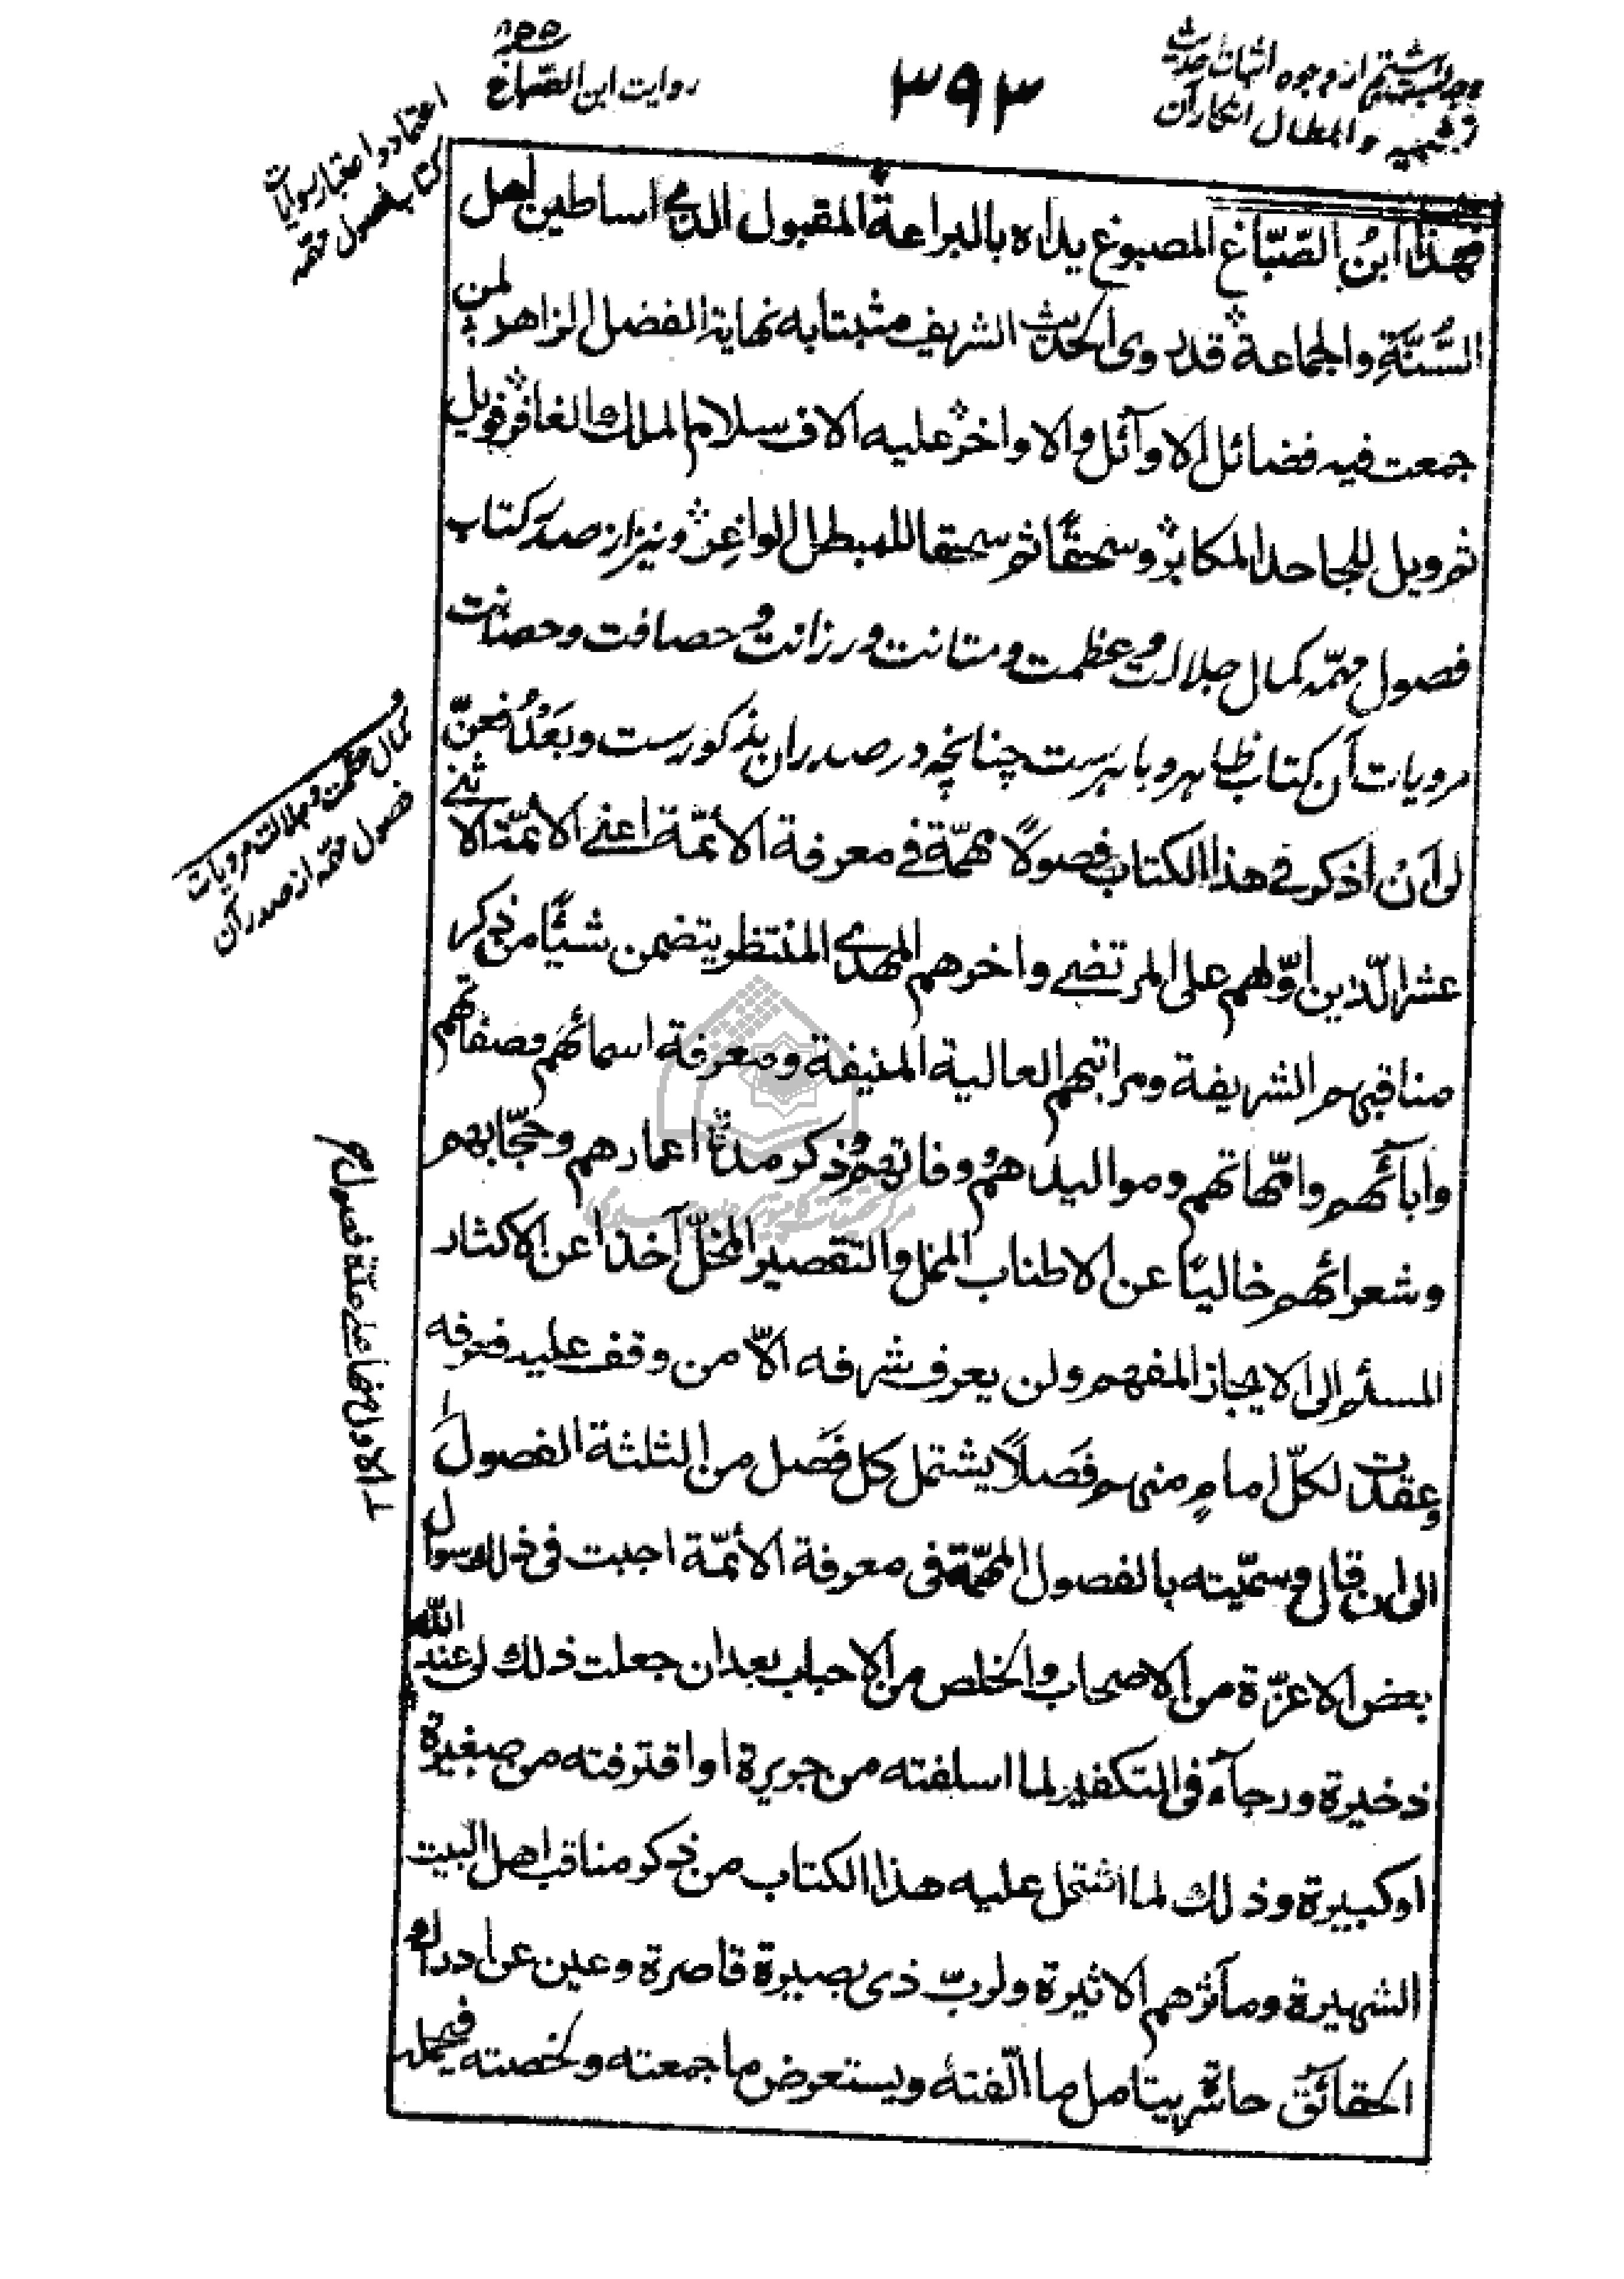 وجه بستم از وجوه اثبات حدیث
تشبیه و ابطال انکار آن
٣٩٣
روایت ابن الصّبّاغ
اعتماد و اعتبار مرویات
کتاب فصول مهمه
فهذا ابنُ الصّبّاغ المصبوغ یداه بالبراعة المقبول الدی اساطین اهل
السُّنَّةِ والجماعة قد روی الحدیث الشریف مثبتا به نهایة الفضل الزاهر لمن
جمعت فیه فضائل الاوآئل والاواخر علیه الاف سلام الملك الغافر فویل
ثم ویل للجاحد المکابر وسحقًا ثم سحقا للمبطل الواغر ونیز از صدر کتاب
فصول مهمّه کمال جلالت و عظمت ومتانت ورزانت و حصافت وحصانت
مرویات آن کتاب ظاهر و باهرست چنانچه در صدر ان مذکورست وبَعْدُ فعنّ
لی اَنْ اذکر فی هذا الکتاب فصولاً مهمّة فی معرفة الأئمّة اعنی الأئمّة الاثنی
عشر الّذین اوّلهم علی المرتضی واخرهم المهدی المنتظر یتضمن شیئًا من ذکر
مناقبهم الشریفة ومراتبهم العالیة المنیفة ومعرفة اسمائهم وصفاتهم
وآبآئهم وامّهاتهم وموالیدهم ووفاتهم وذکر مدّة اعمارهم وحجّابهم
وشعرائهم خالیًا عن الاطناب الممل والتقصیر المخلّ آخذا عن الاکثار
المسئم الی الایجاز المفهم ولن یعرف شرفه الاّ من وقف علیه فعرفه
وعقدت لکلّ امامٍ منهم فَصلاً یشتمل کل فَصل من الثلثة الفصول الاول
الی ان قال وسمّیته بالفصول المهمّة فی معرفة الأئمّة اجبت فی ذلك سوال
بعض الاعزّة من الاصحاب والخلص من الاحباب بعد ان جعلت ذلك لی عند الله
ذخیرة ورجآء فی التکفیر لما اسلفته من جریرة او اقترفته من صغیرة
او کبیرة وذلك لما اشتمل علیه هذا الکتاب من ذکر مناقب اهل البیت
الشهیرة ومآثرهم الاثیرة ولربّ ذی بصیرة قاصرة وعین عن ادراك
الحقائق حاسرة یتامل ما الّفتهُ ویستعرض ما جمعته ولخصته فیحمله
کمال عظمت و جلالت مرویات
فصول مهمه از صدر آن